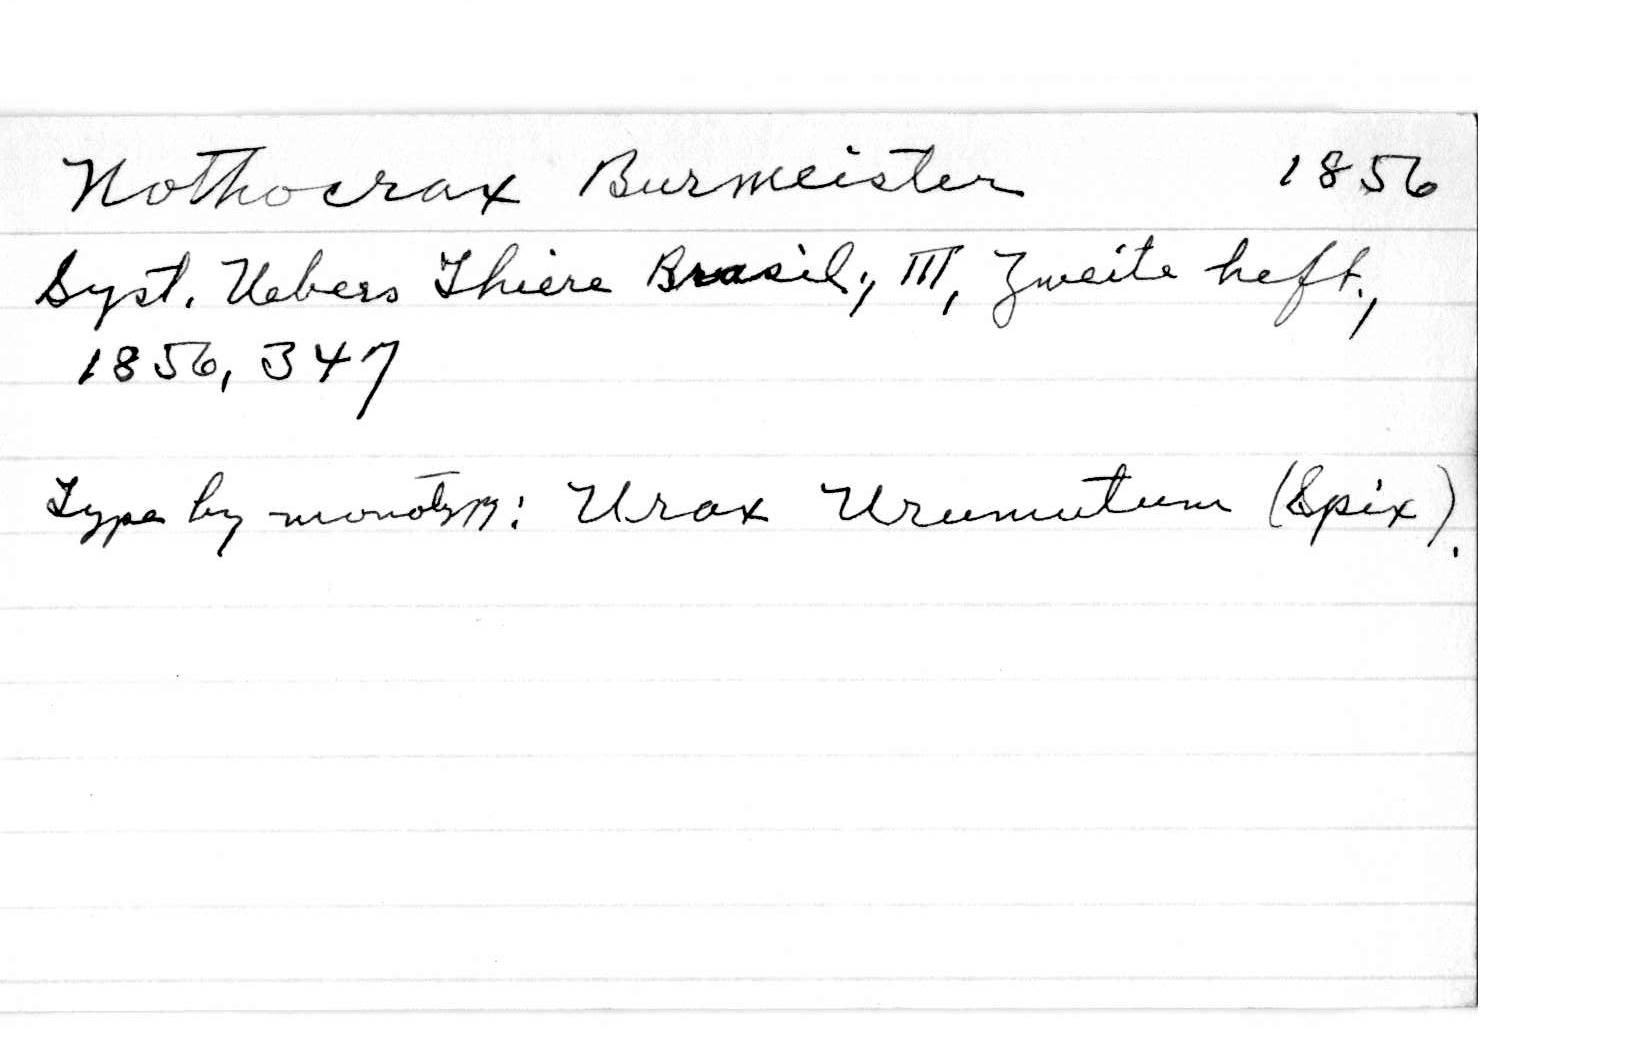 Nothocrax Burmeister 1856
Syst. Uebers Thiere Brasil., III, Zweite heft.,
1856, 347
Type by monotypy: Urax Urumutum (Spix).